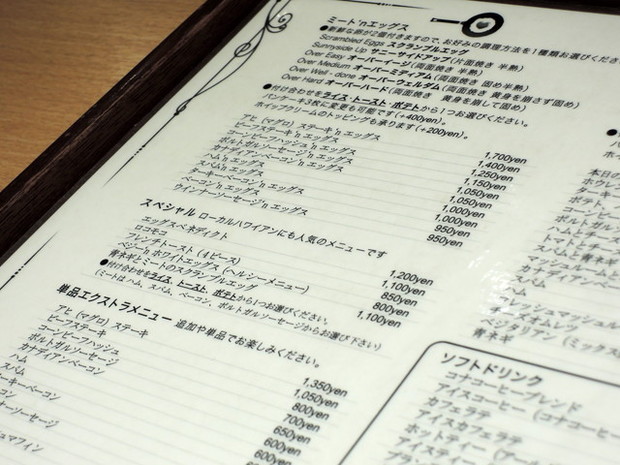 ミート'nエッグス
●新鮮な卵が2個付きますので、お好みの調理方法を1種類お選びくださ
Scrambled Eggs スクランブルエッグ
Sunnyside Up サニーサイドアップ(片面焼き 半熟)
Over Easy オーバーイージ(両面焼き 半熟)
Over Medium オーバーミディアム(両面焼き 固め半熟)
Over Well-done オーバーウェルダム(両面焼き 黄身を崩さず固め)
Over Hard オーバーハード(両面焼き 黄身を崩して固め)
●付け合わせをライス・トースト・ポテトから1つお選びください。
パンケーキ3枚に変更も可能です(+400yen)。
ホイップクリームのトッピングも承ります(+200yen)。
アヒ(マグロ)ステーキ'n エッグス 1,700yen
ビーフステーキ'n エッグス 1,400yen
コーンビーフハッシュ'n エッグス 1,250yen
ポルトガルソーセージ'n エッグス 1,150yen
カナディアンベーコン'n エッグス 1,050yen
ハム'n エッグス 1,050yen
スパム'n エッグス 1,000yen
ターキーベーコン'n エッグス 1,000yen
ベーコン'n エッグス 950yen
ウインナーソーセージ'n エッグス 950yen
スペシャル ローカルハワイアンにも人気のメニューです
エッグスベネディクト 1,200yen
ロコモコ 1,100yen
フレンチトースト(4ピース) 850yen
ベジ'n ホワイトエッグス(ヘルシーメニュー) 800yen
青ネギとミートのスクランブルエッグ 1,100yen
●付け合わせをライス、トースト、ポテトから1つお選びください。
(ミートはハム、スパム、ベーコン、ポルトガルソーセージからお選び下さい)
単品エクストラメニュー 追加や単品でお楽しみください。
アヒ(マグロ)ステーキ 1,350yen
ビーフステーキ 1,050yen
コーンビーフハッシュ 800yen
ポルトガルソーセージ 700yen
カナディアンベーコン 650yen
ハム 600yen
スパム 600yen
ターキーベーコン
ベーコン
ナーソーセージ
ュマフィン
本日の
ホウレン
ターキ
ポテト
コーンビーフ
ポルトガル
ハムとチーズ
トマトとチーズ
スパムと青ネギ
カナディアンベ
マッシュルームと
ハム
フレッシュマッシュル
チーズオムレツ
ベジタリアン(ミックス
青ネギ
ソフトドリンク
コナコーヒーブレンド
アイスコーヒー(コナコーヒ
カフェラテ
アイスカフェラテ
ホットティー(アール
アイスティー